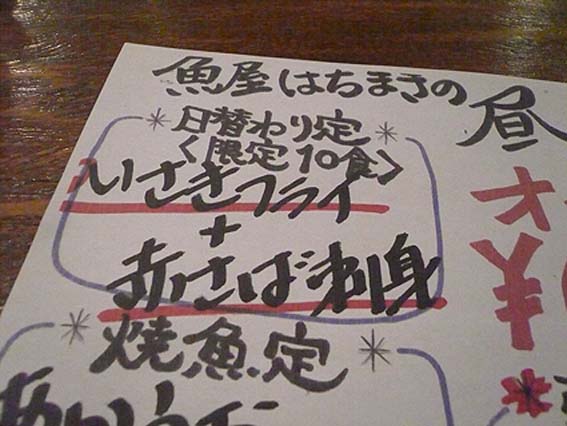 魚屋はちまきの
昼
*日替わり定*
<限定10食>
いさきフライ
+
赤さば刺身
*焼魚定*